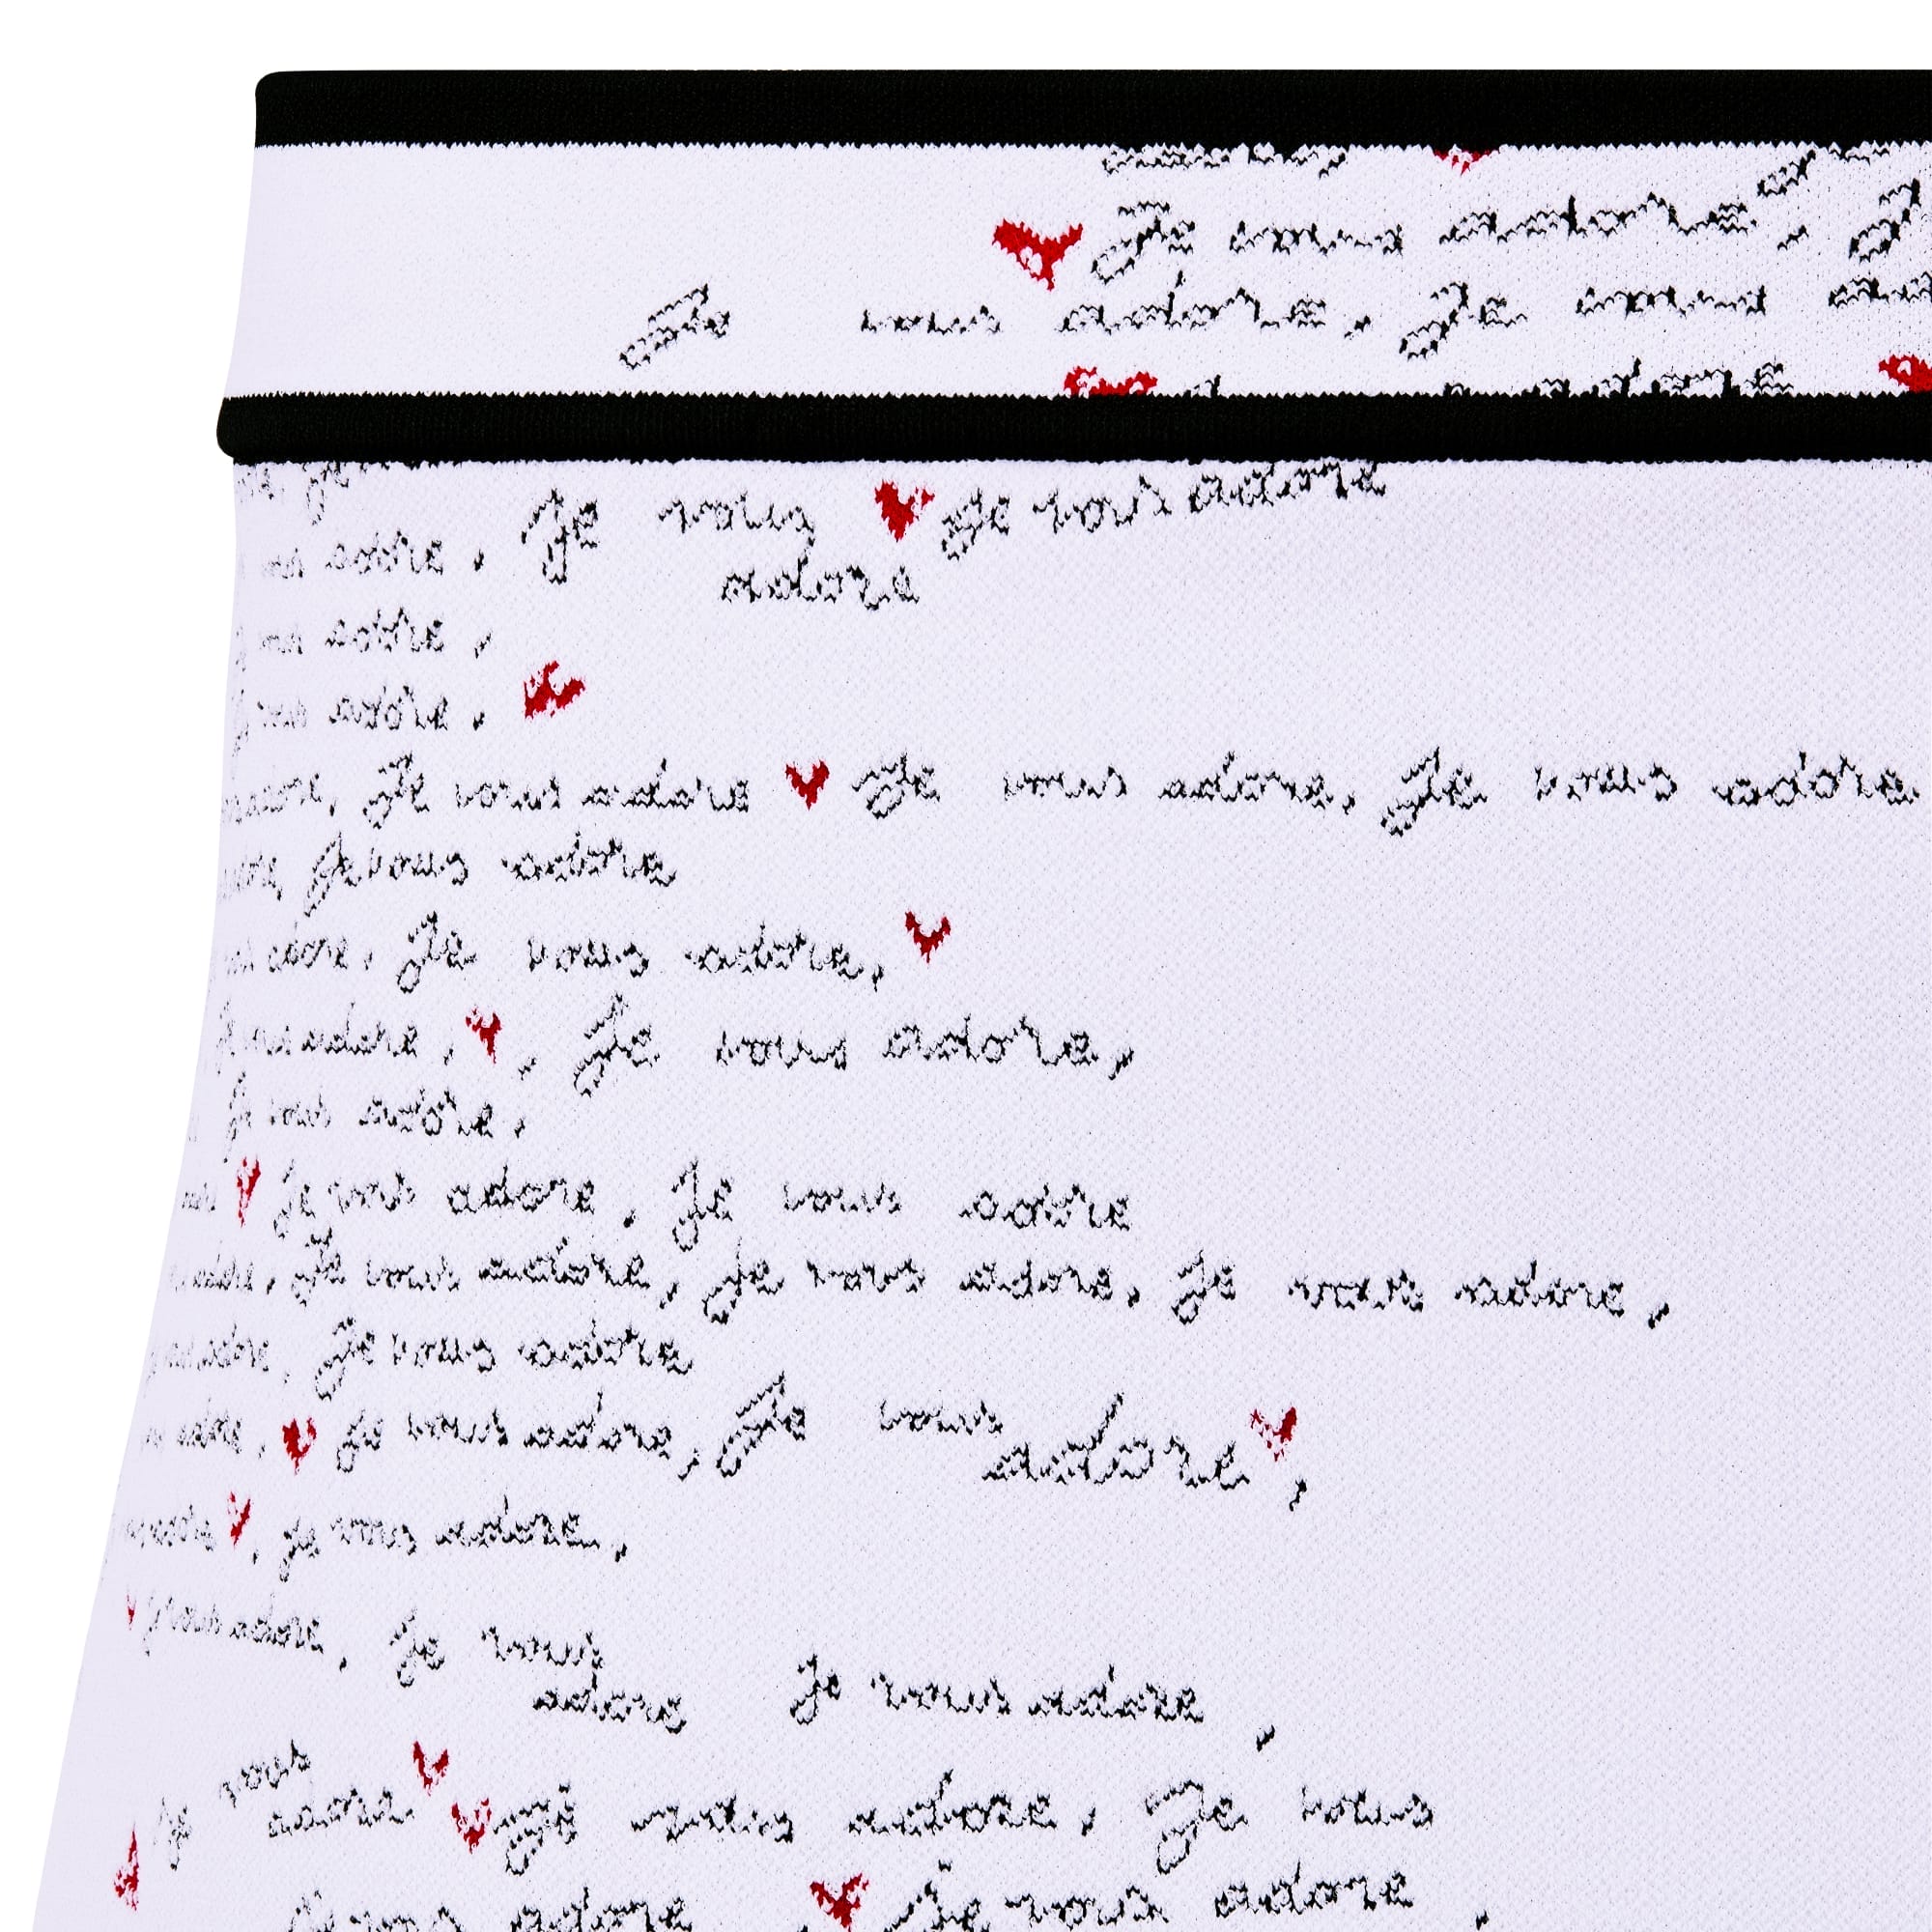 Je vous adore, J
Je vous adore, Je vous
Je
adore, Je vous Je vous adore
adore
adore,
adore,
Je vous adore Je vous adore, Je vous adore,
Je vous adore
adore, Je vous adore,
vous adore, , Je vous adore,
Je vous adore,
Je vous adore, Je vous adore
adore, Je vous adore, Je vous adore, Je vous adore,
adore, Je vous adore
adore, Je vous adore, Je vous
adore,
adore, Je vous adore,
Je vous adore, Je vous
adore Je vous adore,
Je vous
adore Je vous adore, Je vous
Je vous adore Je vous adore,